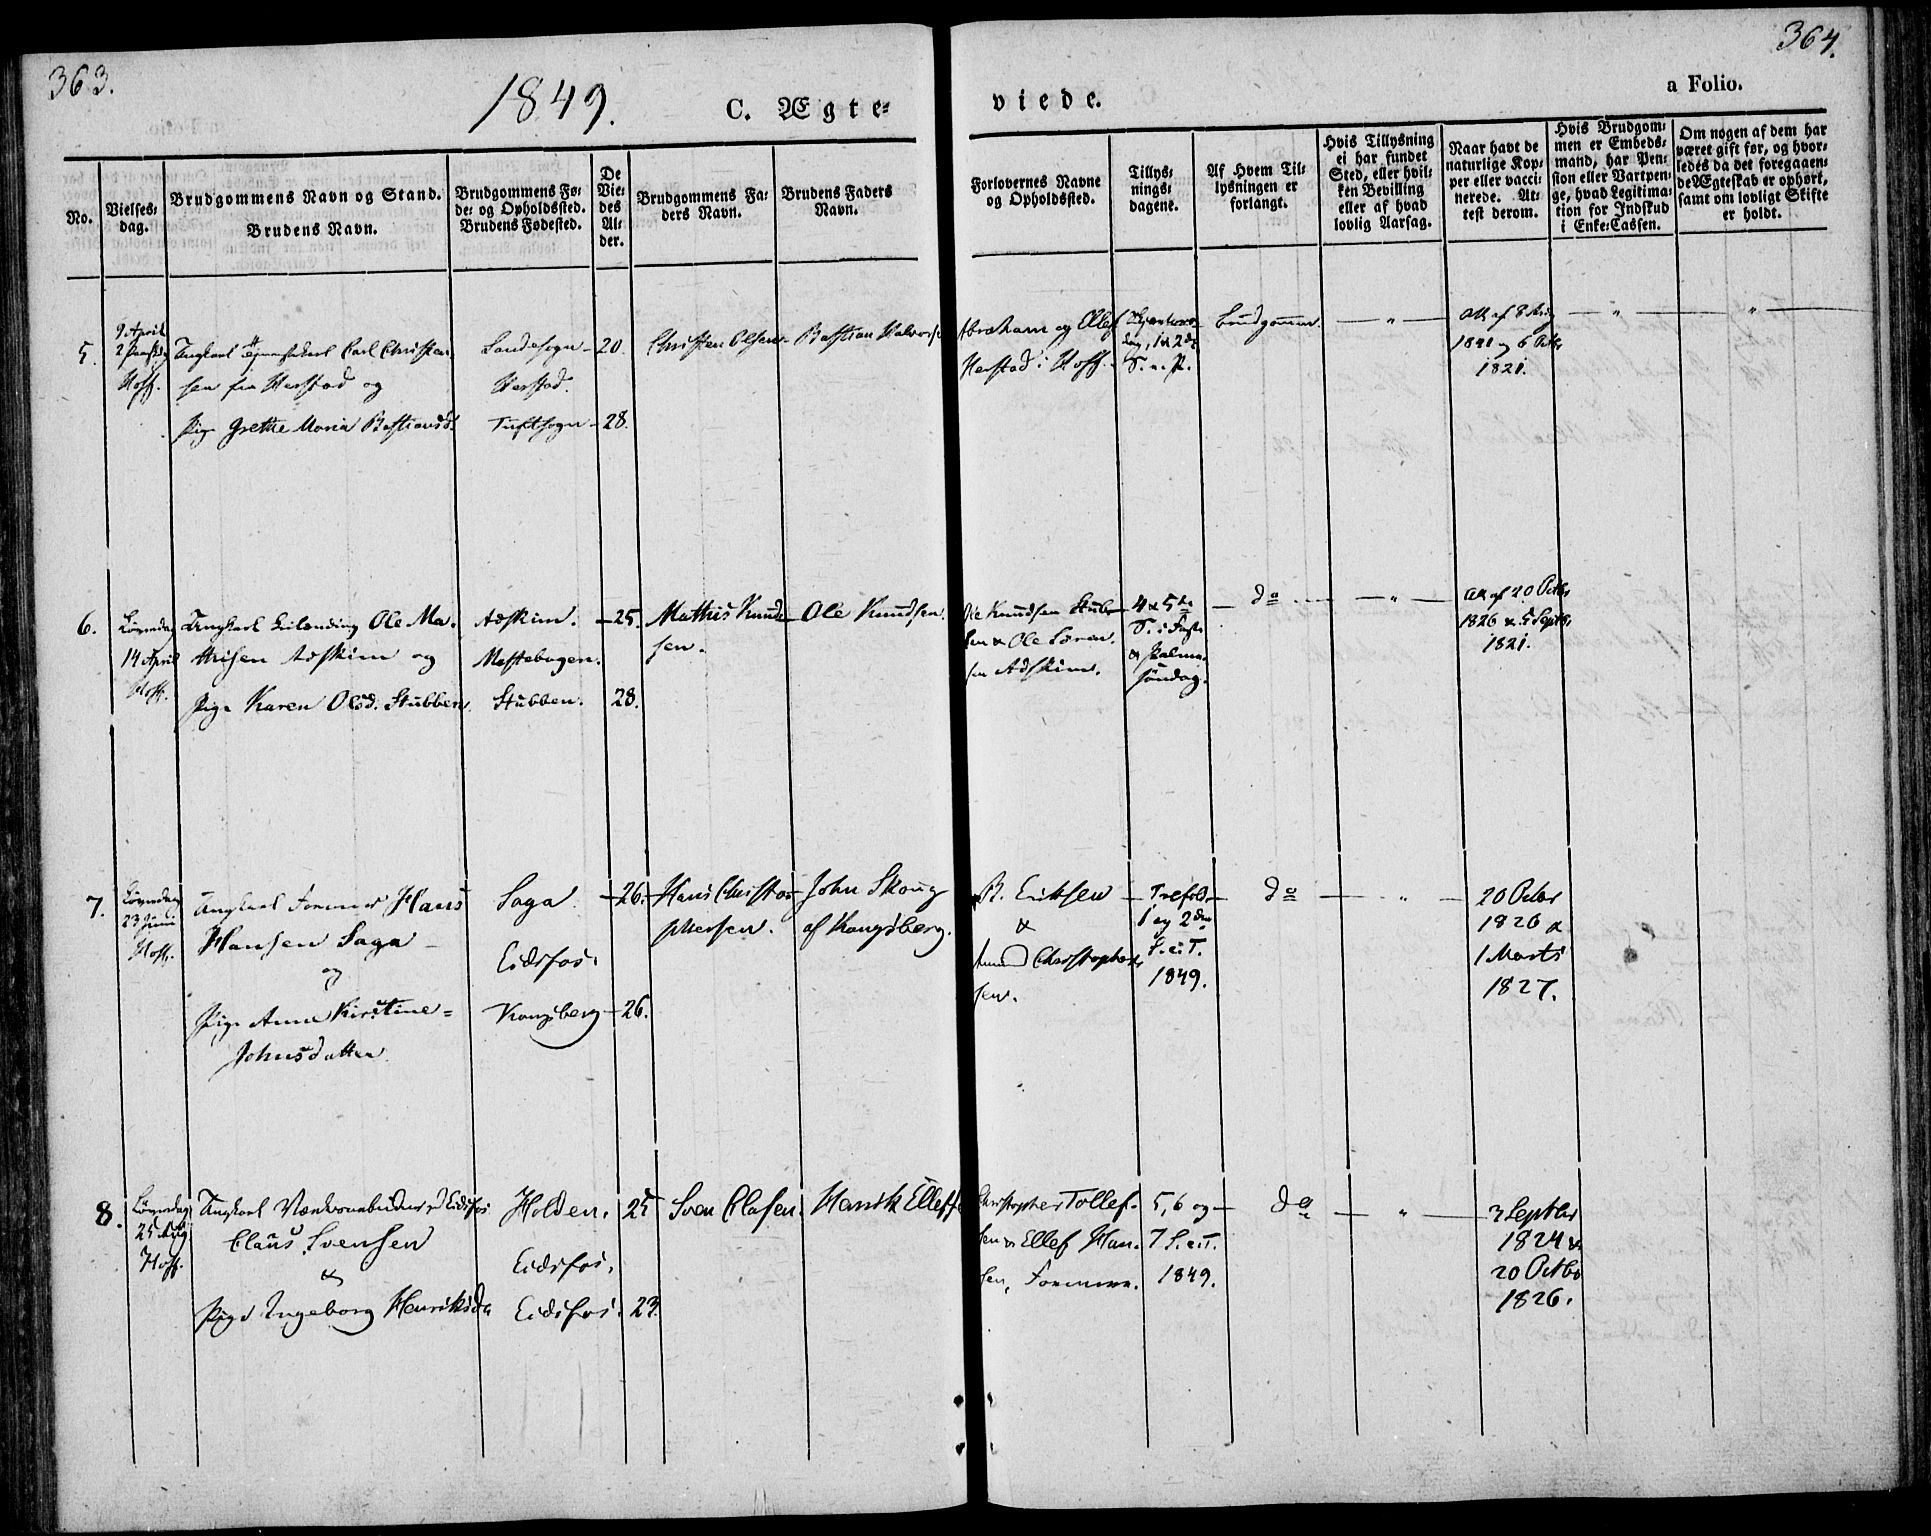 363.
1849.
C. Ægte-
viede.
a Folio.
364.
No.
Vielses-
dag.
Brudgommens Navn og Stand.
Brudens Navn.
Brudgommens Fø-
de- og Opholdssted.
Brudens Fødested.
De
Vie-
des
Al-
der.
Brudgommens Fa-
ders Navn.
Brudens Faders
Navn.
Forlovernes Navne
og Opholdssted.
Tillys-
nings-
dagene.
Af Hvem Til-
lysningen er
forlangt.
Hvis Tillysning
ei har fundet
Sted, eller hvil-
ken Bevilling
eller af hvad
lovlig Aarsag.
Naar havt de
naturlige Kop-
per eller vacci-
nerede. At-
test derom.
Hvis Brudgom-
men er Embeds-
mand, har Pen-
sion eller Vartpen-
ge, hvad Legitima-
tion for Indskud
i Enke-Cassen.
Om nogen af dem har
været gift før, og hvor-
ledes da det foregaaen-
de Ægteskab er ophørt,
samt om lovligt Skifte
er holdt.
5.
9 April
Hoff.
Ungkarl Carl Christen-
sen fra Herstad og
Pige Grethe Maria Bastiansd.
Sandesogn
Herstad.
Tuftsogn
20.
28.
Christen Olsen
Bastian Halvors
Abraham og Ellef
Herstad i Hoff.
dag, 1 & 2de
S. e. P.
Brudgommen
Att af 8 Aug
1841 og 6 Octbr
1821.
6.
Løverdag
14 April
Hoff.
Ungkarl Ole Ma-
thisen Adskim og
Pige Karen Olsd. Stubben.
Adskim.
Mastebogen.
Stubben.
25.
28.
Mathis Knud-
sen.
Ole Knudsen.
Ole Knudsen Stub-
ben & Ole Soren-
sen Adskim.
4 & 5te
S. i Faste
& Palme-
søndag.
do
Att af 20 Octbr
1826 & 5 Septbr
1821.
7.
Løverdag
23 Juni
Hoff.
Ungkarl Former Hans
Hansen Saga
og
Pige Anne Kirstine
Johnsdatter.
Saga.
Eidsfos.
Kongsberg
26.
26.
Hans Christo-
phersen.
John Skoug
af Kongsberg.
B. Eriksen
&
Amund Christopher-
sen.
Trefold.
1 og 2den
S. e. T.
1849.
do
20 Octbr
1826 &
1 Marts
1827.
8.
Løverdag
25 Aug
Hoff.
Ungkarl Værksarbeider v. Eidsfos
Claus Svensen
&
Pige Ingeborg Henriksda
Holden.
Eidsfos.
Eidsfos.
25
23.
Sven Clasen.
Henrik Elleffs
Christopher Tollef-
sen & Ellef Han-
sen, Formere.
5, 6 og
7 S. e. T.
1849.
do
3 Septbr
1824 &
20 Octbr
1826.